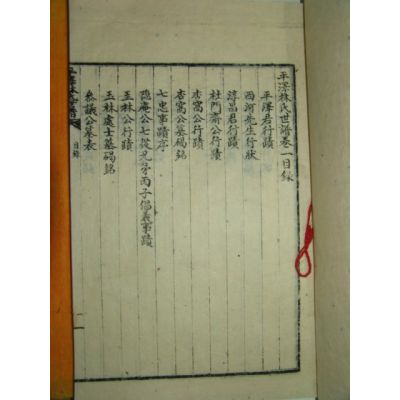 平澤林氏世譜卷一目錄
平澤君行蹟
西河先生行狀
淳昌君行蹟
杜門齋公行蹟
杏窩公行蹟
杏窩公墓碣銘
七忠事蹟序
隱庵公七從兄弟丙子倡義事蹟
玉林公行蹟
玉林處士墓碣銘
參議公墓表
平澤林氏世譜
目錄
一